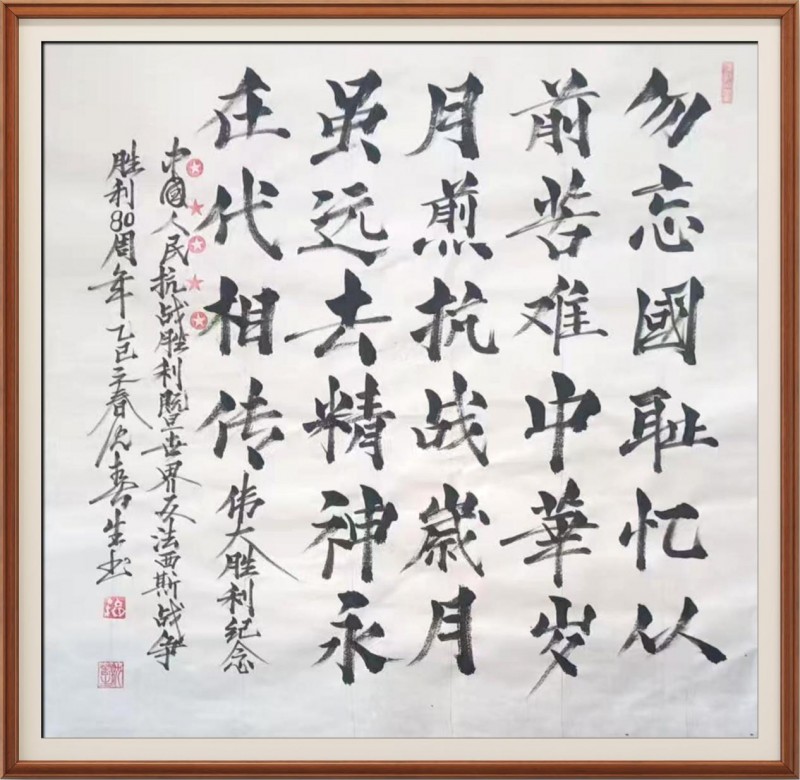 勿忘國耻忆从
前苦难中華岁
月煎抗战嵗月
虽远去精神永
在代相传
伟大胜利纪念
中国人民抗战胜利暨世界反法西斯战争
胜利80周年乙巳之春生书